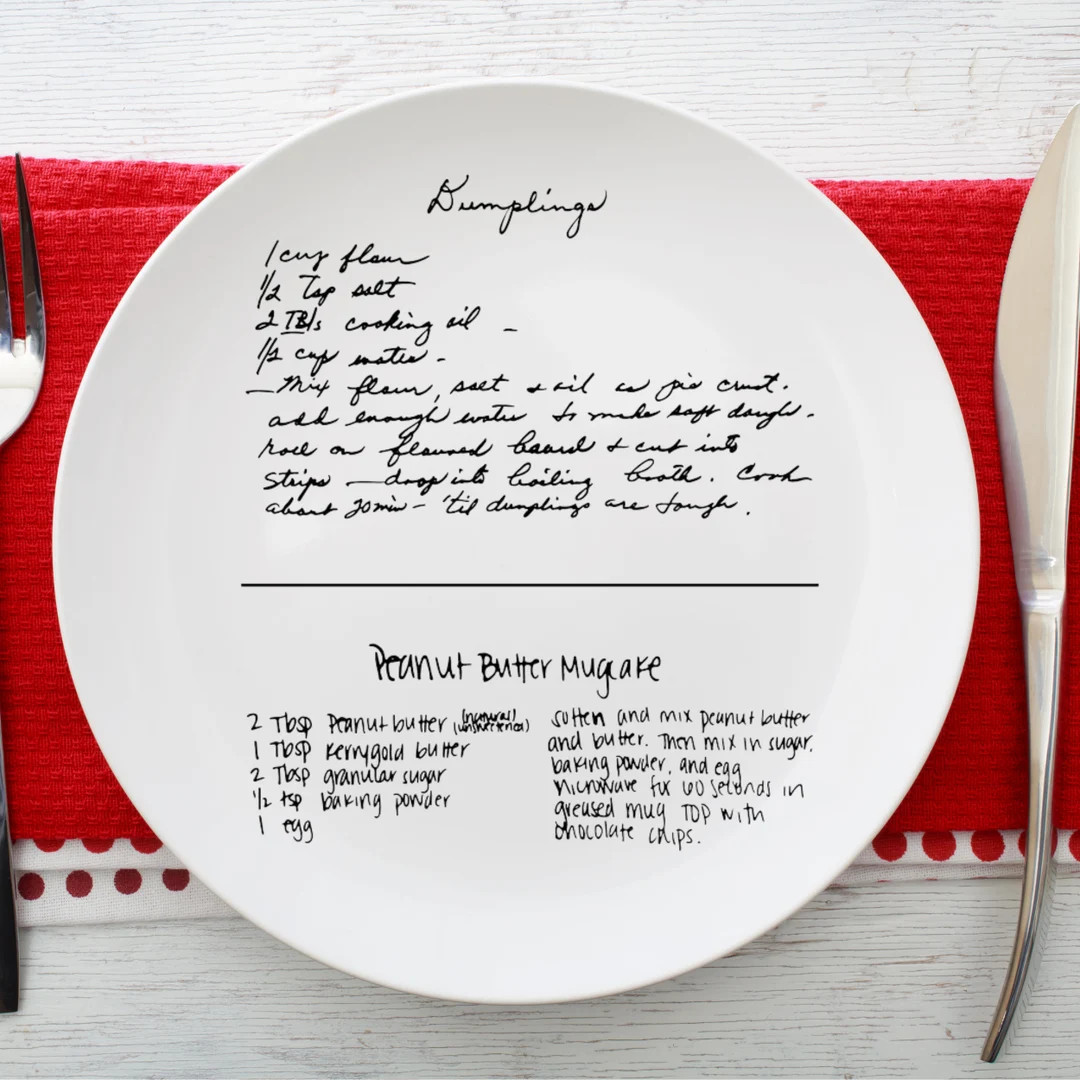 Dumplings
1 cup flour
1/2 Tsp salt
2 TB/s cooking oil -
1/2 cup water -
- Mix flour, salt & oil as pie crust.
add enough water to make soft dough.
roll on floured board & cut into
strips - drop into boiling broth. Cook
about 20 min - 'til dumplings are tough.
Peanut Butter Mugcake
2 Tbsp Peanut butter (natural/unsweetened)
1 Tbsp Kerrygold butter
2 Tbsp granular sugar
1/2 tsp baking powder
1 egg
soften and mix peanut butter
and butter. Then mix in sugar,
baking powder, and egg
microwave for 60 seconds in
greased mug TOP with
chocolate chips.